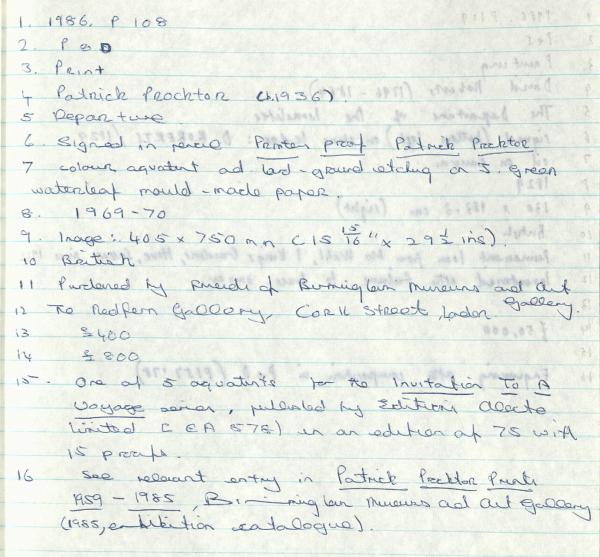 1. 1986. P 108
2. P & D
3. Print
4 Patrick Procktor (b.1936).
5 Departure.
6. Signed in pencil Printers proof Patrick Procktor
7 colour aquatint ad hard-ground etching on J. Green
waterleaf mould-made paper.
8. 1969-70
9. Image: 405 x 750 mm (15 15/16" x 29 1/2 ins).
10 British.
11 Purchased by Friends of Birmingham Museums ad Art Gallery.
12 The Redfern Gallery, Cork Street, London.
13 £400
14 £800
15. One of 5 aquatints for the Invitation To A
Voyage series, published by Editions Alecto
Limited (EA 575) in an edition of 75 with
15 proofs.
16 See relevant entry in Patrick Procktor Prints
1959-1985, Birmingham Museums ad Art Gallery
(1985, exhibition catalogue).